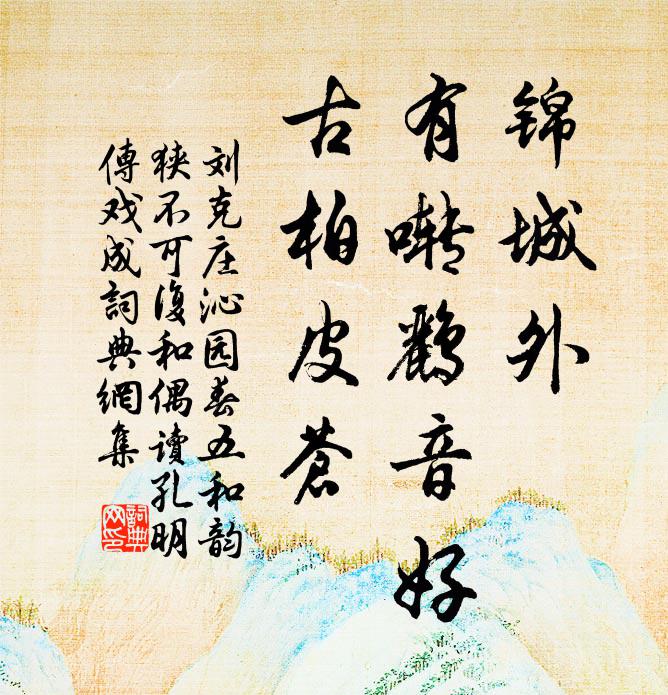 锦城外
有啭鹂音好
古柏皮苍
刘克庄沁园春五和韵
狭不可復和偶读孔明
傳戏成詞典網集
詞典
网印